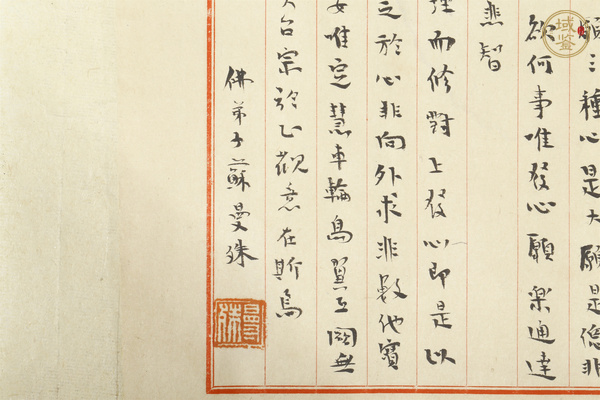 願三種心是大願是總非
欲何事唯發心願樂通達
悲智
而修對上發心即是以
之於心非向外求非數他寶
唯定慧車輪鳥翼互闕無
台宗於止觀意在斯焉
佛弟子蘇曼殊
曼殊
域鉴